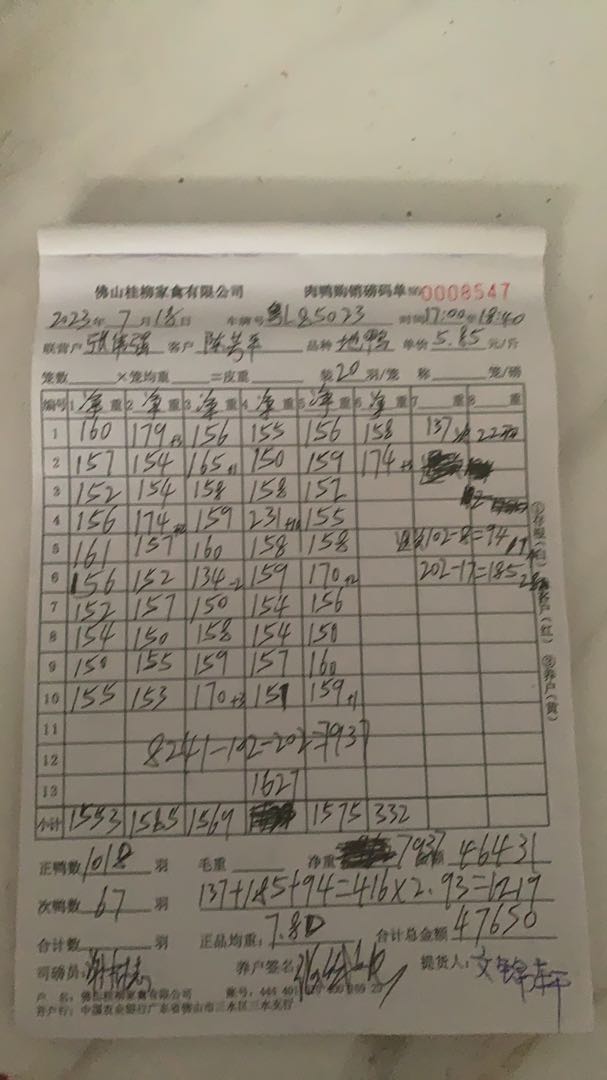 佛山桂柳家禽有限公司 肉鸭购销磅码单 №0008547
2023年7月18日 车牌号 粤L85023 时间17:00至18:40
联营户 张伟强 客户 品种 地鸭 单价5.85元/斤
笼数 ×笼均重 =皮重 装20羽/笼 称 笼/磅
编号 1净重 2净重 3净重 4净重 5净重 6净重 7 重 8 重
1 160 179+3 156 155 156 158 137
2 157 154 165+1 150 159 174+3
3 152 154 158 158 152
4 156 174+2 159 231+10 155
5 161 157 160 158 158 102-8=94
6 156 152 134-2 159 170+2 202-17=185
7 152 157 150 154 156
8 154 150 158 154 150
9 150 155 159 157 160
10 155 153 170+3 151 159+1
11
12 8241-102-202=7937
13 1627
小计 1553 1565 1569 1575 332
①存根(白) 客户(红) ③养户(黄)
正鸭数1018羽 毛重 净重 7937 金额 46431
次鸭数 67 羽 137+185+94=416×2.93=1219
合计数 羽 正品均重:7.80 合计总金额 47650
司磅员: 养户签名 提货人:
户 名:佛山桂柳家禽有限公司 账号:444 401
开户行:中国农业银行广东省佛山市三水区三水支行